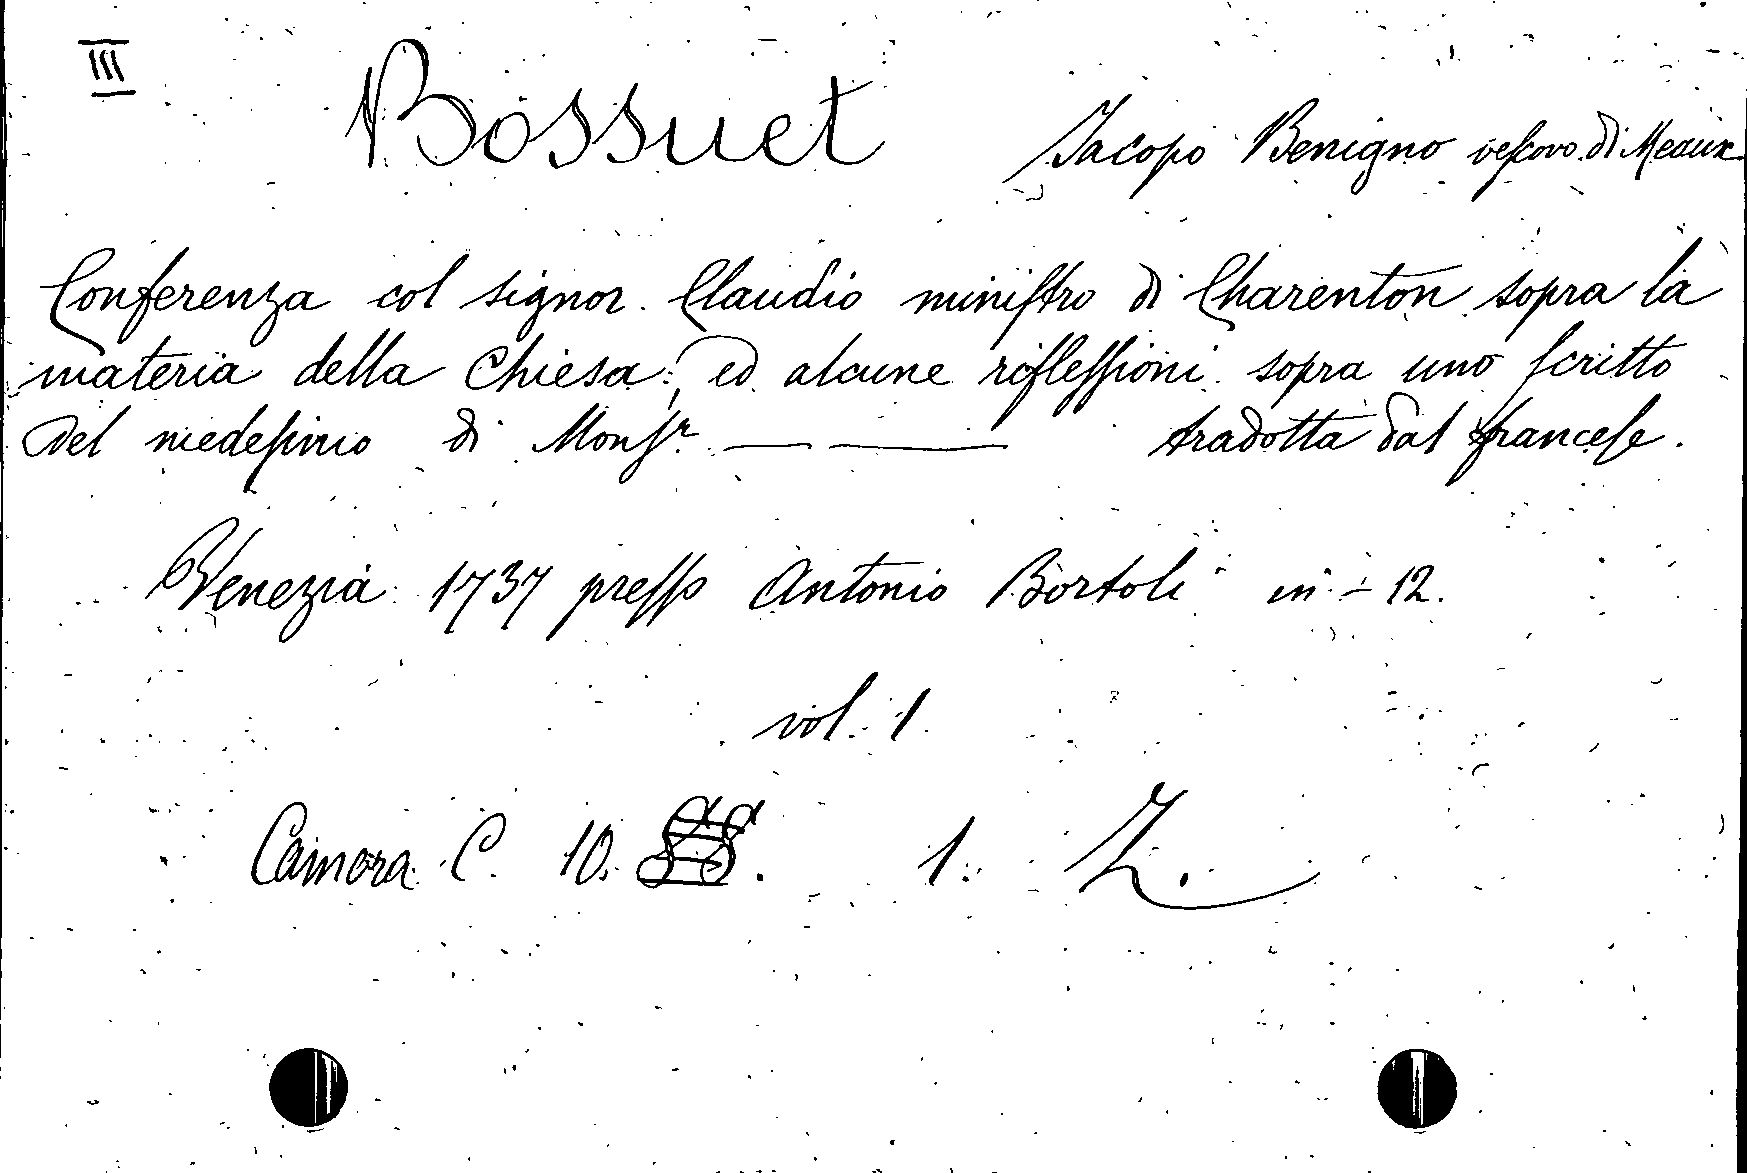 III
Bossuet Jacopo Benigno vescovo di Meaux
Conferenza col signor Claudio ministro di Charenton sopra la
materia della Chiesa: ed alcune riflessioni sopra uno scritto
del medesimo di Monsr. — — tradotta dal francese.
Venezia 1737 presso Antonio Bortoli in - 12.
vol. 1
Camera C. 10. 1. Z.